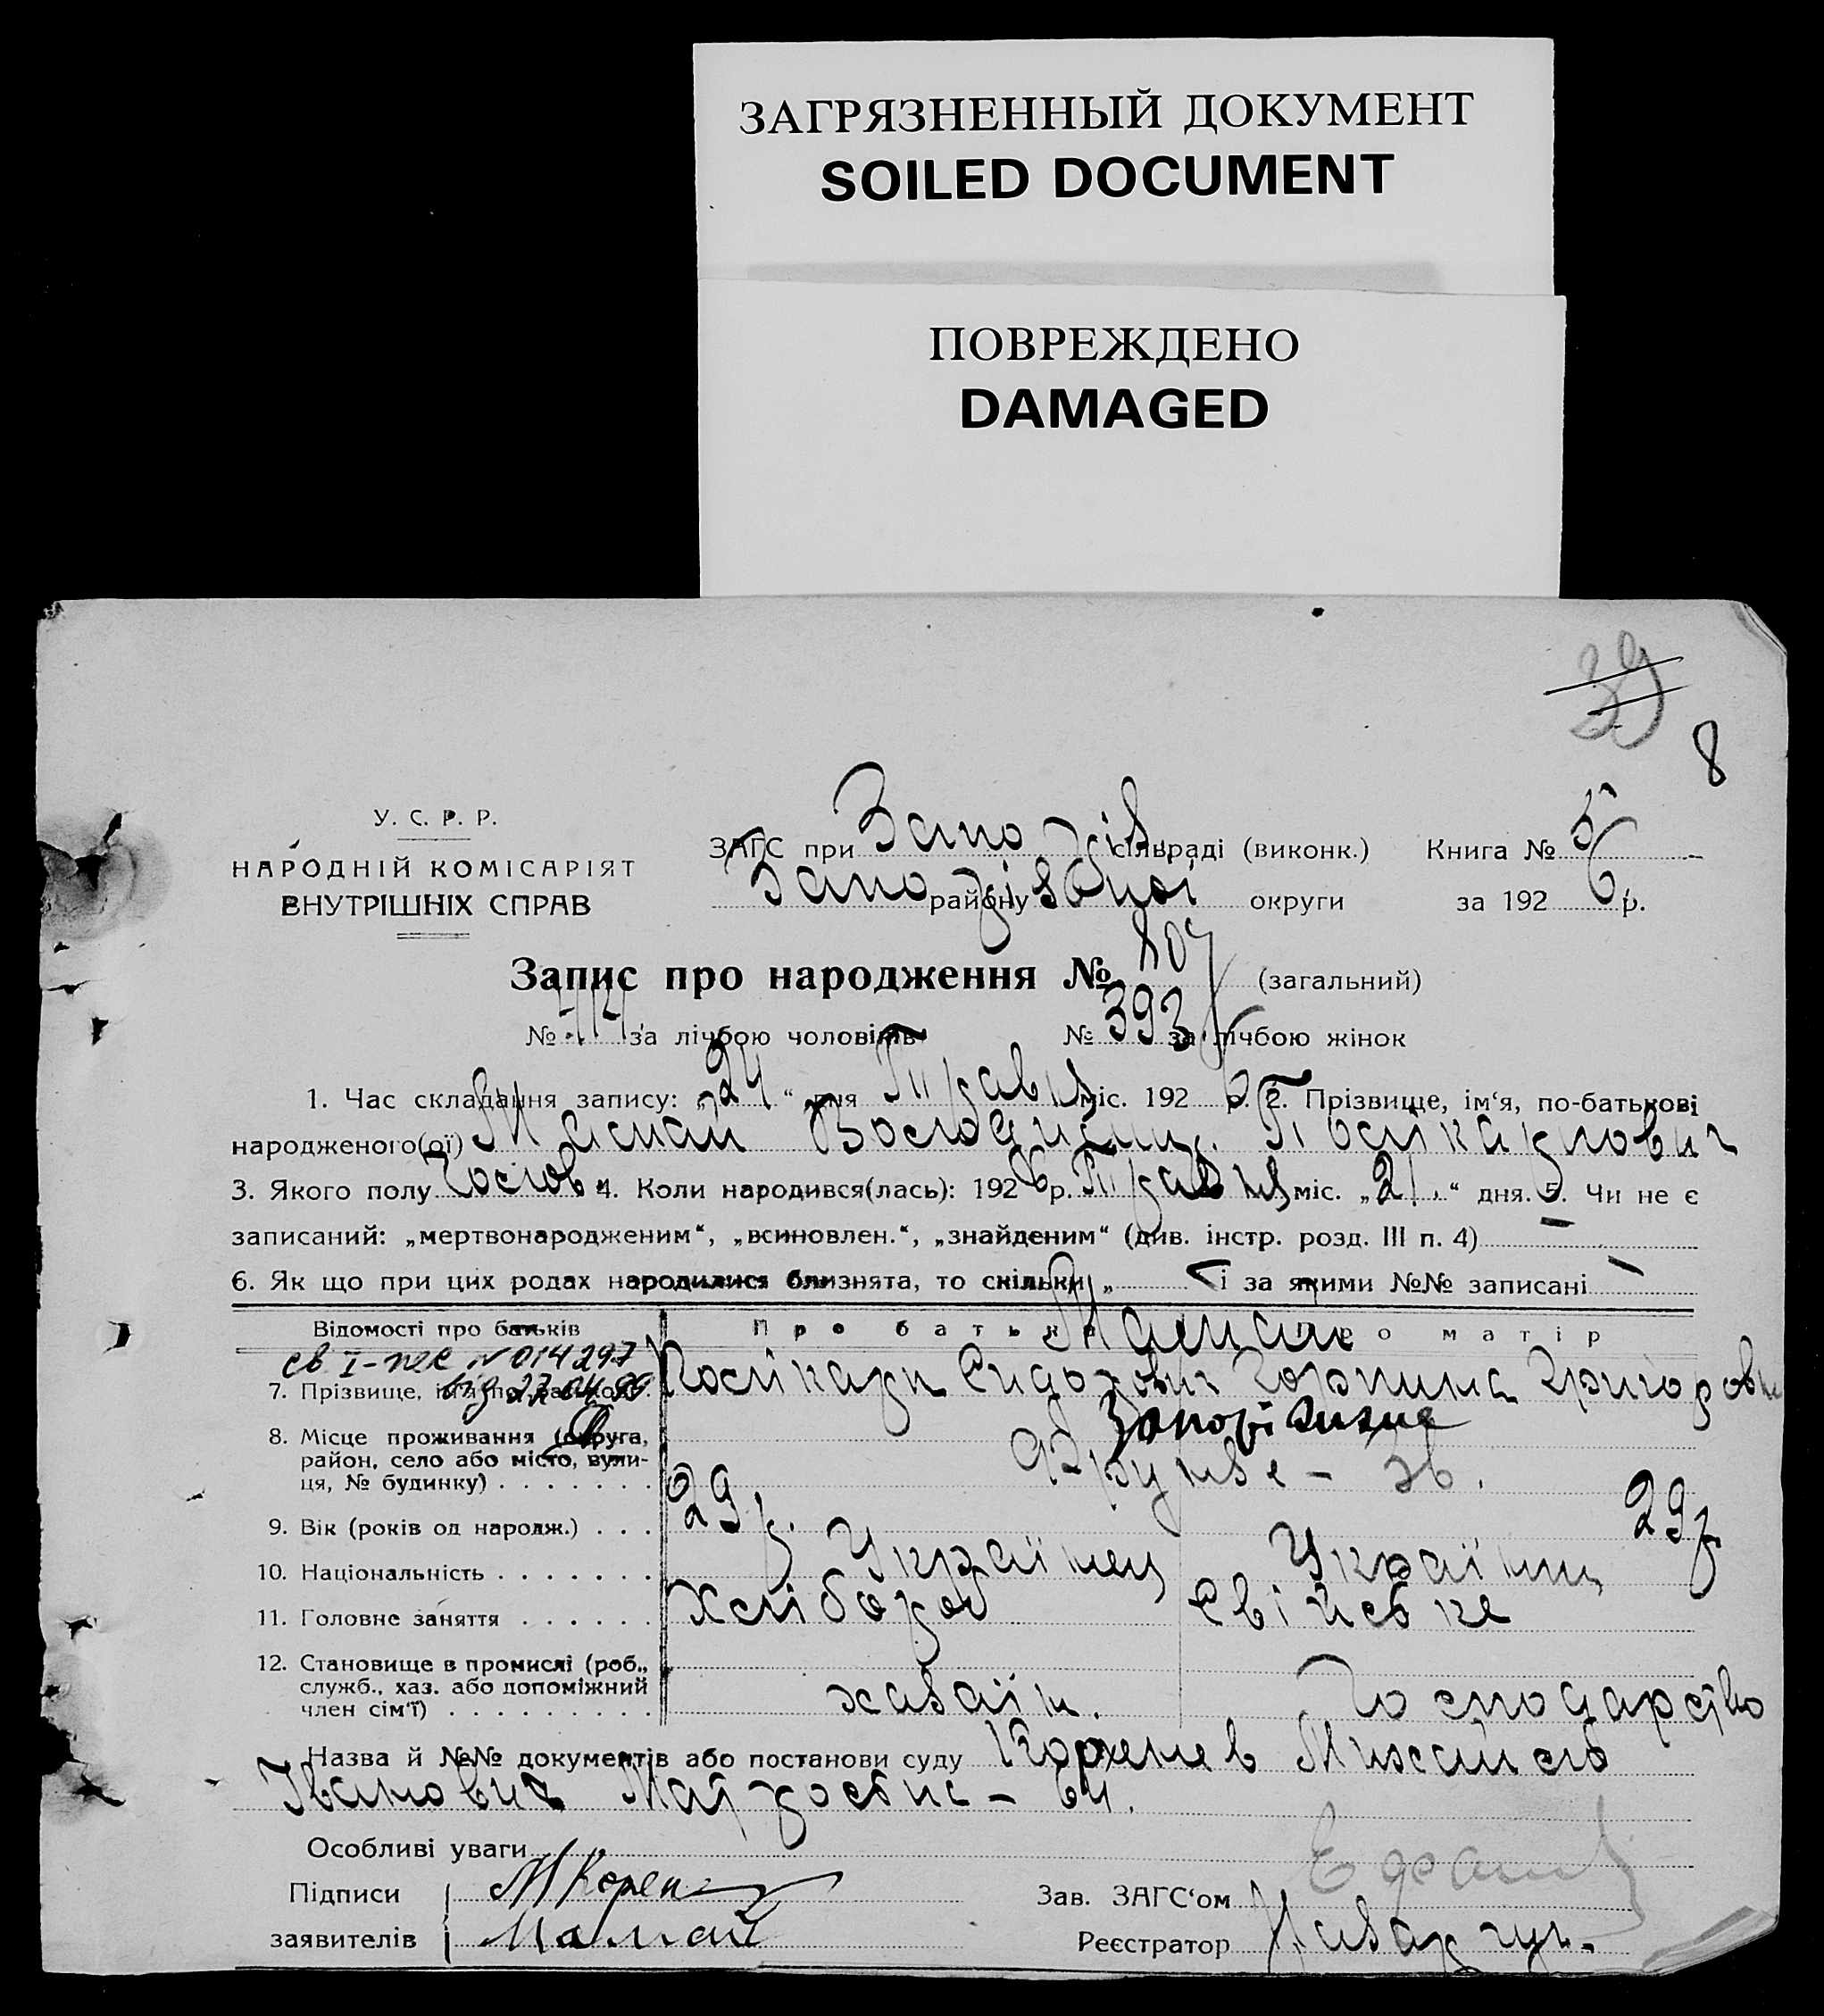 ЗАГРЯЗНЕННЫЙ ДОКУМЕНТ
SOILED DOCUMENT
ПОВРЕЖДЕНО
DAMAGED
39
8
У. С. Р. Р.
НАРОДНІЙ КОМІСАРІЯТ
ВНУТРІШНІХ СПРАВ
ЗАГС при сільраді (виконк.) Книга № 5
району округи за 1926 р.
Запис про народження № 807 (загальний)
№ 414 за лічбою чоловіків № 393 за лічбою жінок
1. Час складання запису: „24“ дня Травня міс. 1926 р. 2. Прізвище, ім‘я, по-батькові
народженого(ої) Мамай Володимир Полікарпович
3. Якого полу Чолов. 4. Коли народився(лась): 1926 р. Травня міс. „21“ дня. 5. Чи не є
записаний: „мертвонародженим“, „всиновлен.“, „знайденим“ (див. інстр. розд. III п. 4) —
6. Як що при цих родах народилися близнята, то скільки „ і за якими №№ записані —
Відомості про батьків Про батька Про матір
св. І-пов № 014297 Мамай
від 27.04.89
7. Прізвище, ім‘я, по-батькові. Полікарп Сидорович Горпина Григоровн
8. Місце проживання (округа, Запоріжжя
район, село або місто, вули-
ця, № будинку) Фрунзе – 36.
9. Вік (років од народж.) 29 р. 29 р
10. Національність Українец Українц
11. Головне заняття Хлібороб Свійське
12. Становище в промислі (роб.,
служб., хаз. або допоміжний
член сім‘ї) хазаїн. Господарство
Назва й №№ документів або постанови суду Коренев Михайло
Іванович
Особливі уваги
Підписи М Корен Зав. ЗАГС‘ом
заявителів Мамай Реєстратор